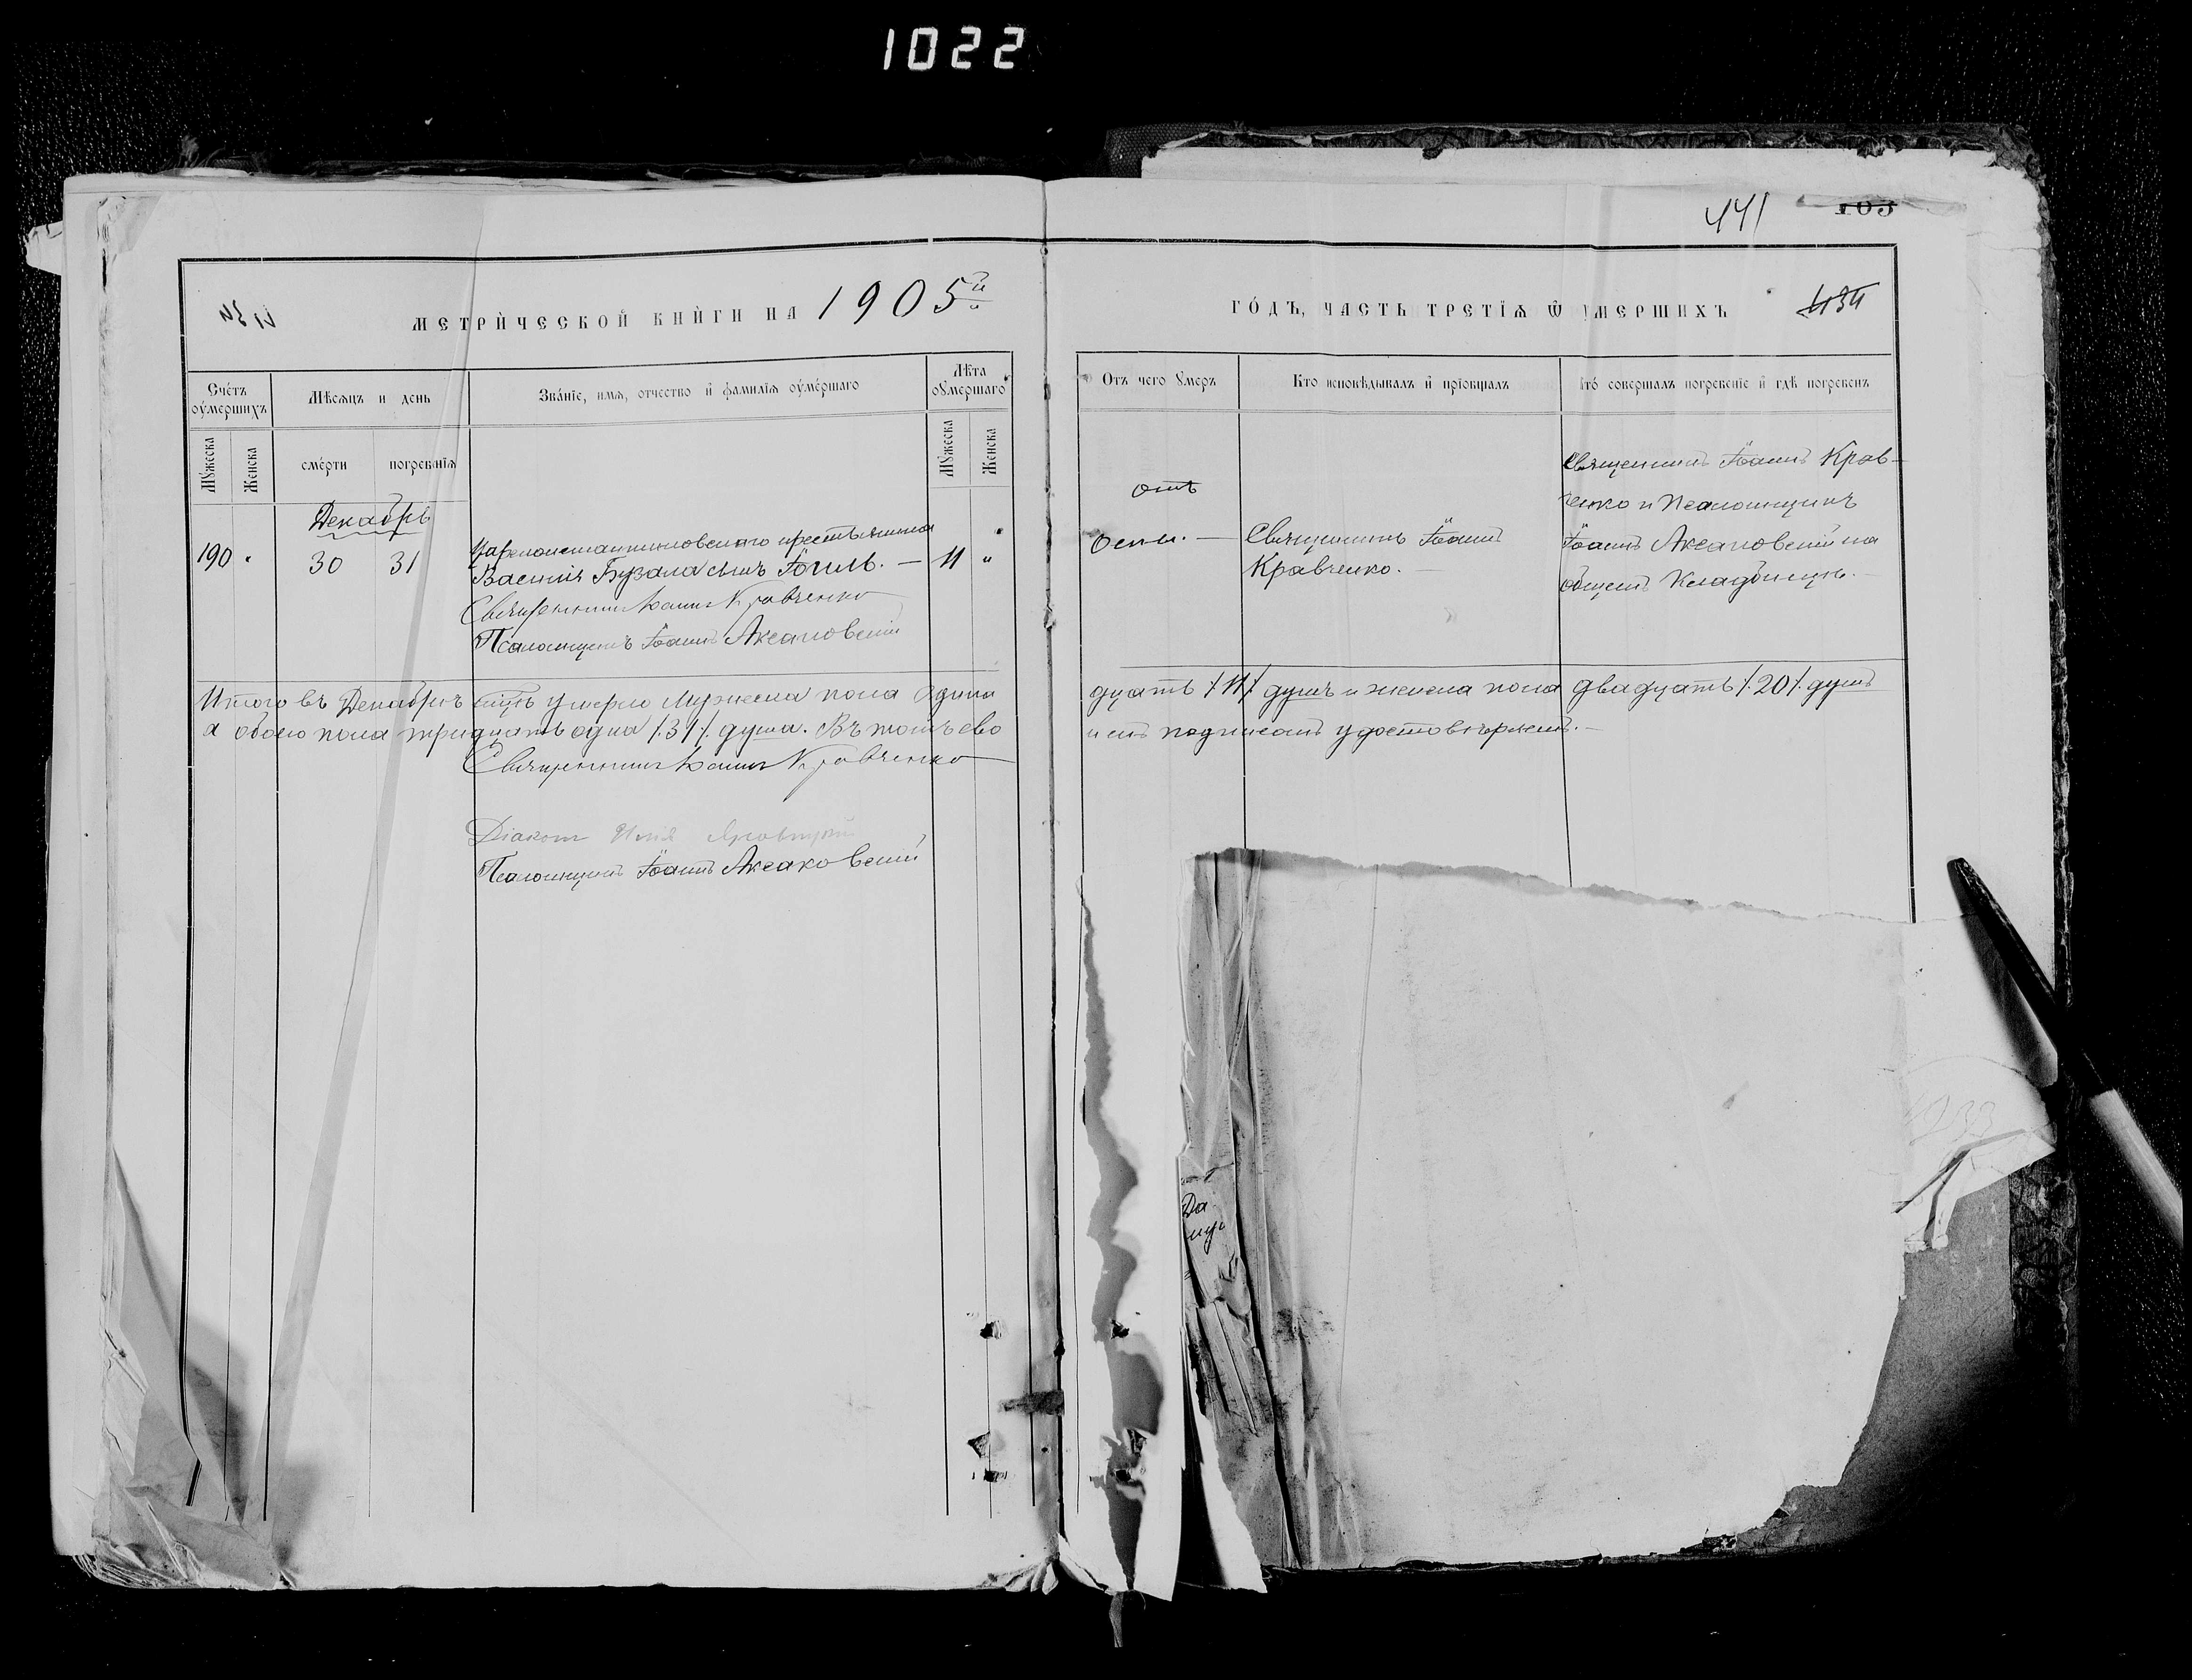 1022
441 103
МЕТРИ́ЧЕСКОЙ КНИ́ГИ НА 1905й
ГО́ДЪ, ЧАСТЬ ТРЕТІѦ Ѿ УМЕРШИХЪ 434
Сче́тъ оу҆ме́ршихъ
Мѣсѧцъ и день
Зва́нїе, имѧ, отчество и҆ фамилїѧ оу҆ме́ршаго
Лѣта оу҆мершаго
Мꙋжеска
Женска
сме́рти
погребенїѧ
Мꙋжеска
Женска
Отъ чего ᲂумеръ
Кто исповѣдывалъ и҆ прїобщалъ
Кто́ совершалъ погребенїе и҆ гдѣ погребенъ
Декабрь
190 " 30 31
Цареконстантиновскаго крестьянина
Василія Бузала сынъ Іоиль. — 11 "
Священникъ Іоаннъ Кравченко
Псаломщикъ Іоаннъ Аксаковскій
отъ
оспы. —
Священникъ Іоаннъ
Кравченко. —
Священникъ Іоаннъ Крав-
ченко и Псаломщикъ
Іоаннъ Аксаковскій на
общемъ Кладбищѣ. —
Итого въ Декабрѣ мцѣ умерло Мужеска пола одина
дцать /.11/. душъ и женска пола двадцать /.20/. душъ
а обоего пола тридцать одна /.31/. душа. Въ томъ сво
имъ подписомъ удостовѣряемъ. —
Священникъ Іоаннъ Кравченко
Діаконъ Илія
Псаломщикъ Іоаннъ Аксаковскій
Да